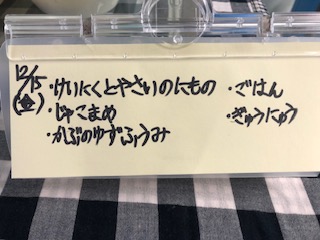 12/15
(金)
・けいにくとやさいのにもの
・じゃこまめ
・かぶのゆずふうみ
・ごはん
・ぎゅうにゅう